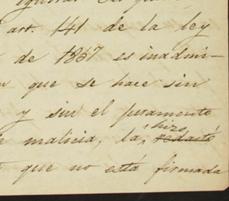 art. 141 de la ley
de 1857 es inadmi-
que se hace sin
y sin el juramento
malicia, la hizo
que no está firmada